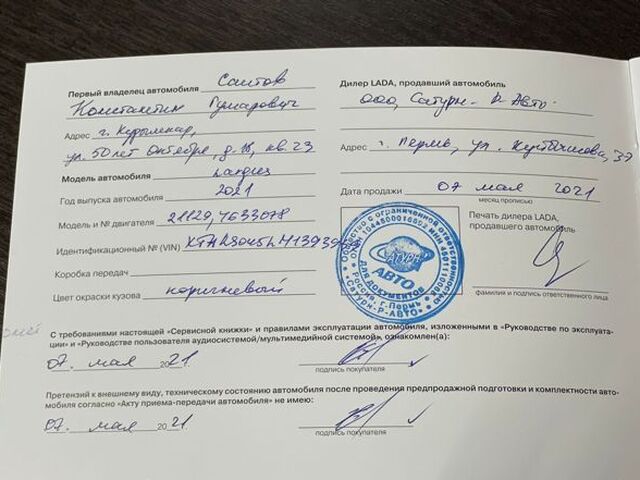 Первый владелец автомобиля Саитов
Константин
Адрес г.
ул. 50 лет Октября, д. кв. 23
Модель автомобиля Largus
Год выпуска автомобиля 2021
Модель и № двигателя
Идентификационный № (VIN)
Коробка передач
Цвет окраски кузова коричневый
Дилер LADA, продавший автомобиль
ООО, Сатурн-Р-Авто.
Адрес г. Пермь, ул. Куйбышева, 37
Дата продажи 07 мая 2021
месяц прописью
Печать дилера LADA,
продавшего автомобиль
фамилия и подпись ответственного лица
Общество с ограниченной ответственностью
САТУРН
АВТО
Для документов
Россия, г. Пермь
"Сатурн-Р-АВТО"
С требованиями настоящей «Сервисной книжки» и правилами эксплуатации автомобиля, изложенными в «Руководстве по эксплуата-
ции» и «Руководстве пользователя аудиосистемой/мультимедийной системой», ознакомлен(а):
07. мая 2021
подпись покупателя
Претензий к внешнему виду, техническому состоянию автомобиля после проведения предпродажной подготовки и комплектности авто-
мобиля согласно «Акту приема-передачи автомобиля» не имею:
07. мая 2021
подпись покупателя